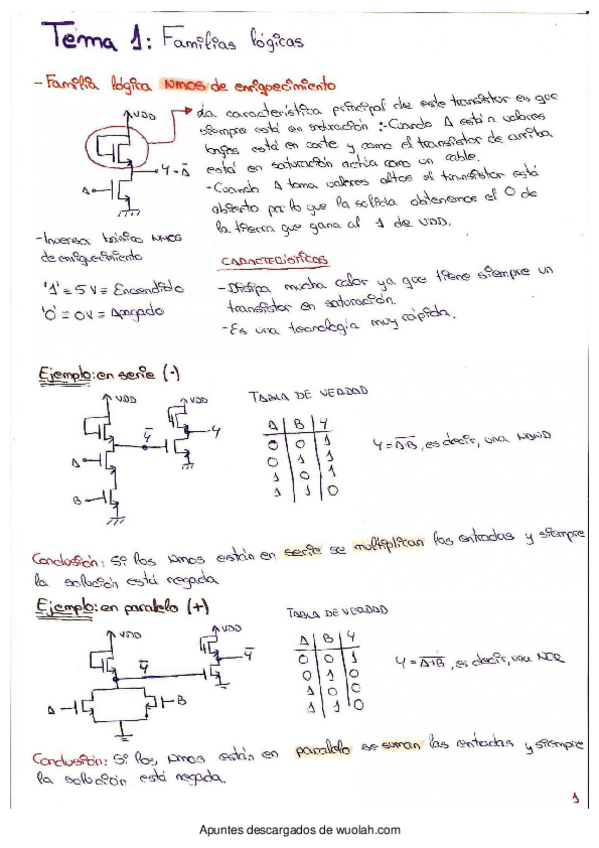 Tema 1: Familias lógicas
- Familia lógica NMOS de enriquecimiento
VDD
La característica principal de este transistor es que
siempre está en saturación :- Cuando A están valores
bajos está en corte y como el transistor de arriba
está en saturación actúa como un cable.
Y = A̅
A
- Cuando A toma valores altos el transistor está
abierto por lo que la salida obtenemos el 0 de
la tierra que gana al 1 de VDD.
- Inversor básico NMOS
de enriquecimiento
CARACTERÍSTICAS
'1' = 5V = Encendido
- Disipa mucha calor ya que tiene siempre un
transistor en saturación.
'0' = 0V = Apagado
- Es una tecnología muy rápida.
Ejemplo: en serie (·)
VDD VDD
TABLA DE VERDAD
Y̅ Y
A B Y
0 0 1
0 1 1
1 0 1
1 1 0
Y = A̅B̅, es decir, una NAND
A
B
Conclusión: Si los NMOS están en serie se multiplican las entradas y siempre
la solución está negada
Ejemplo: en paralelo (+)
TABLA DE VERDAD
VDD VDD
Y̅ Y̅
A B Y
0 0 1
0 1 0
1 0 0
1 1 0
Y = A̅+̅B̅, es decir, una NOR
A B
Conclusión: Si los NMOS están en paralelo se suman las entradas y siempre
la solución está negada.
1
Apuntes descargados de wuolah.com